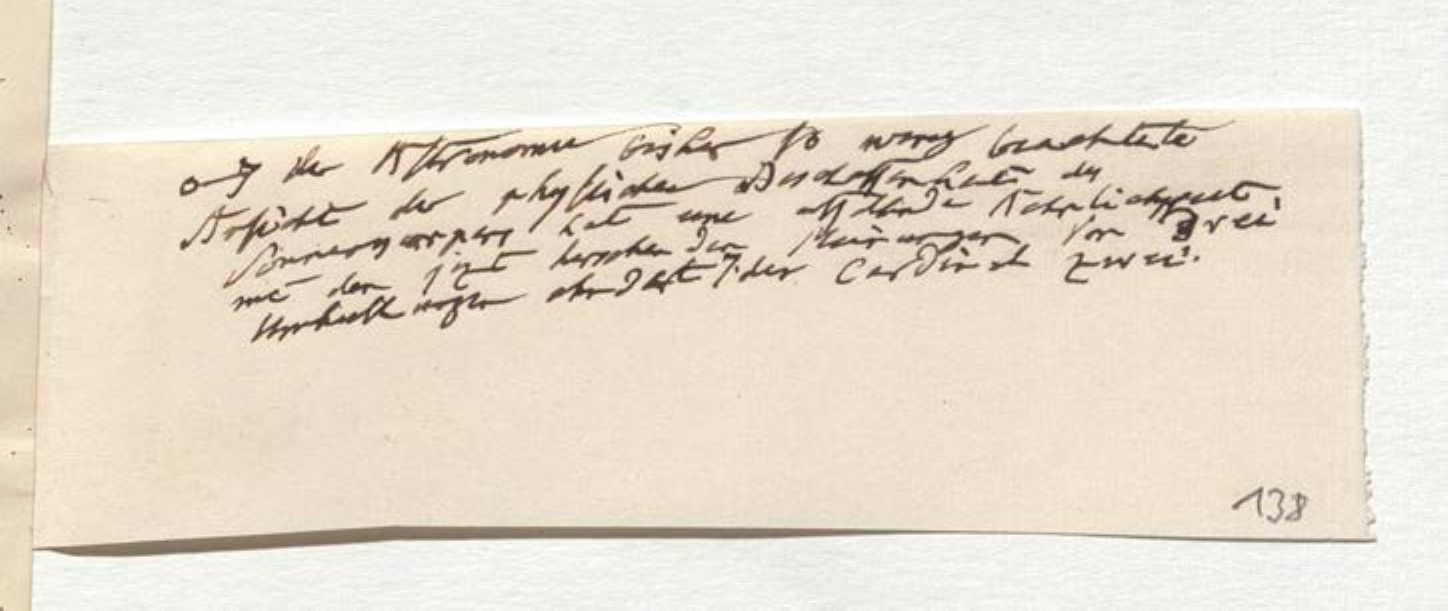 o–7 der Astronomie bisher so wenig beachtete
Ansicht der physischen Beschaffenheit des
Sonnenkörpers hat eine auffallende Aehnlichkeit
mit den jezt herrschenden Meinungen von drei
Umhüllungen der Cardinal zwei.
138